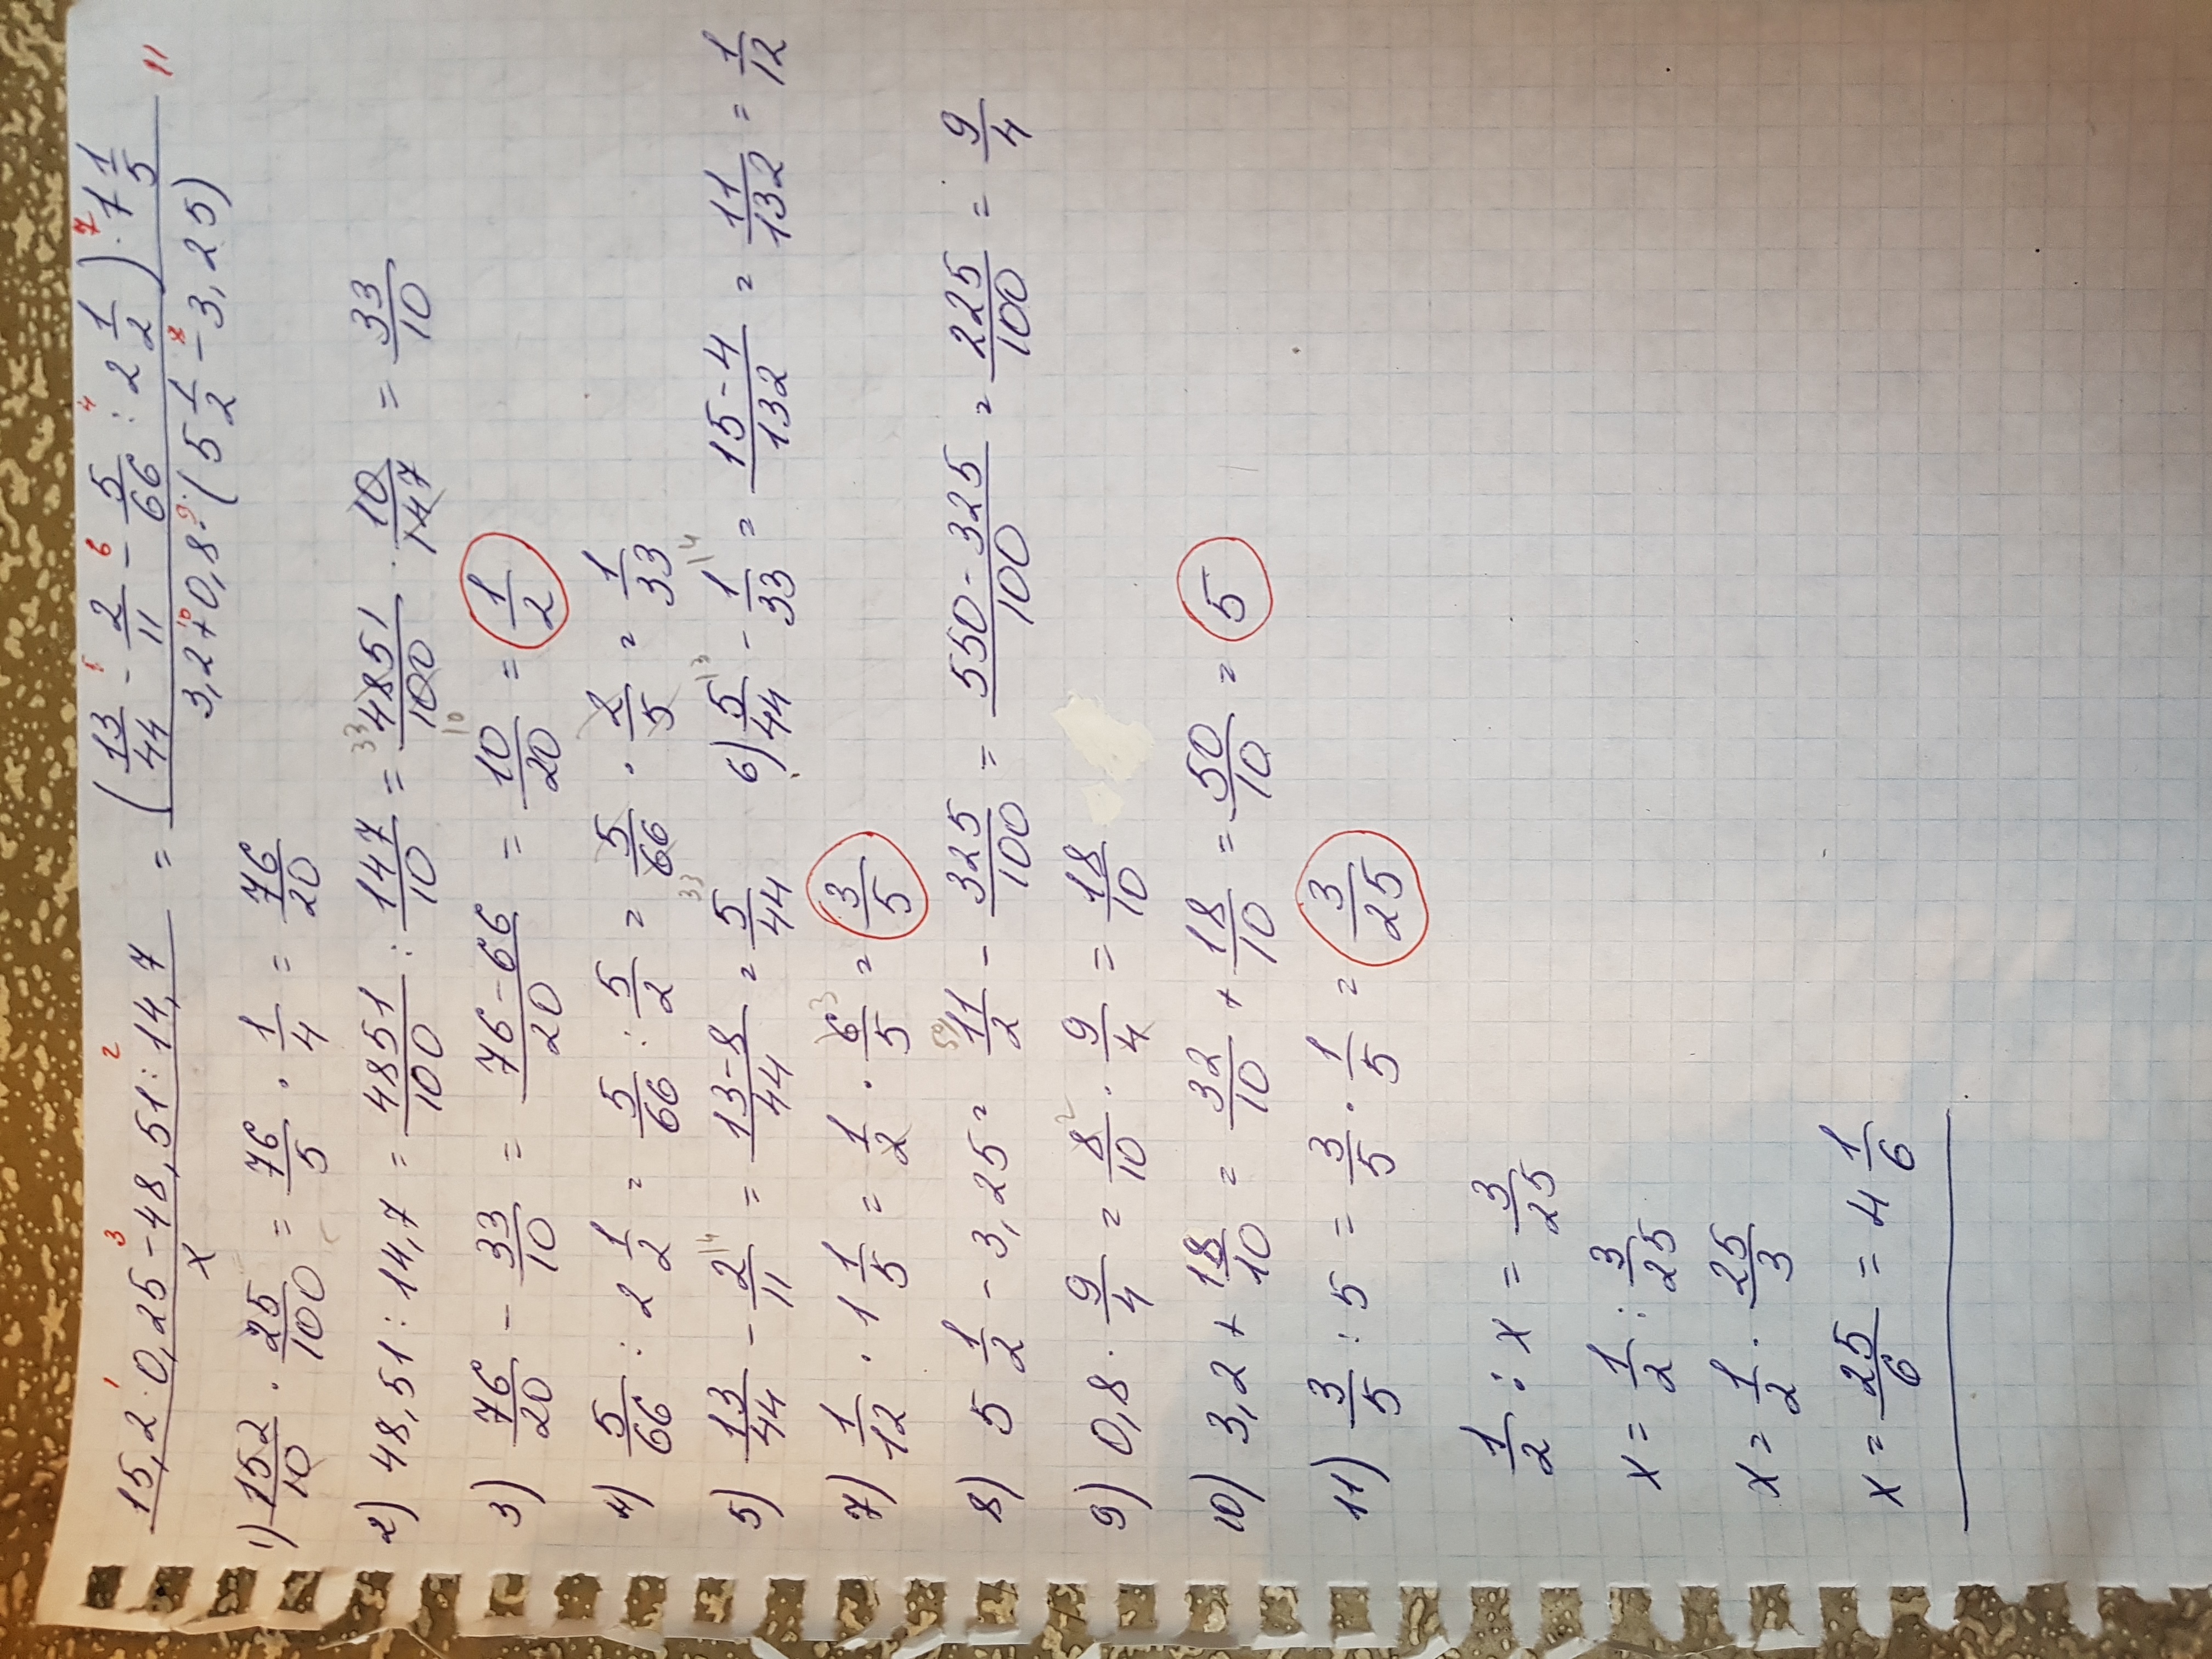 (15,2 · 0,25 - 48,51 : 14,7)/x = ((13/44 - 2/11 - 5/66 : 2 1/2) · 1 1/5)/(3,2 + 0,8 · (5 1/2 - 3,25))
1) 152/10 · 25/100 = 76/5 · 1/4 = 76/20
2) 48,51 : 14,7 = 4851/100 : 147/10 = 4851/100 · 10/147 = 33/10
3) 76/20 - 33/10 = (76-66)/20 = 10/20 = 1/2
4) 5/66 : 2 1/2 = 5/66 : 5/2 = 5/66 · 2/5 = 1/33
5) 13/44 - 2/11 = (13-8)/44 = 5/44 6) 5/44 - 1/33 = (15-4)/132 = 11/132 = 1/12
7) 1/12 · 1 1/5 = 1/2 · 6/5 = 3/5
8) 5 1/2 - 3,25 = 11/2 - 325/100 = (550-325)/100 = 225/100 = 9/4
9) 0,8 · 9/4 = 8/10 · 9/4 = 18/10
10) 3,2 + 18/10 = 32/10 + 18/10 = 50/10 = 5
11) 3/5 : 5 = 3/5 · 1/5 = 3/25
1/2 : x = 3/25
x = 1/2 : 3/25
x = 1/2 · 25/3
x = 25/6 = 4 1/6